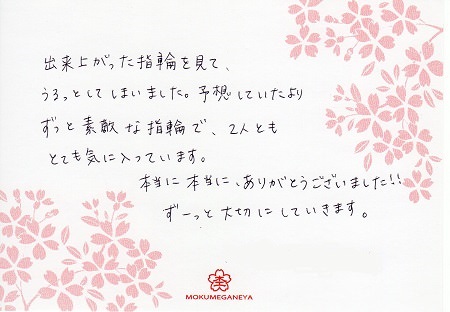 出来上がった指輪を見て、
うるっとしてしまいました。予想していたより
ずっと素敵な指輪で、2人とも
とても気に入っています。
本当に本当に、ありがとうございました!!
ずーっと大切にしていきます。
杢
MOKUMEGANEYA